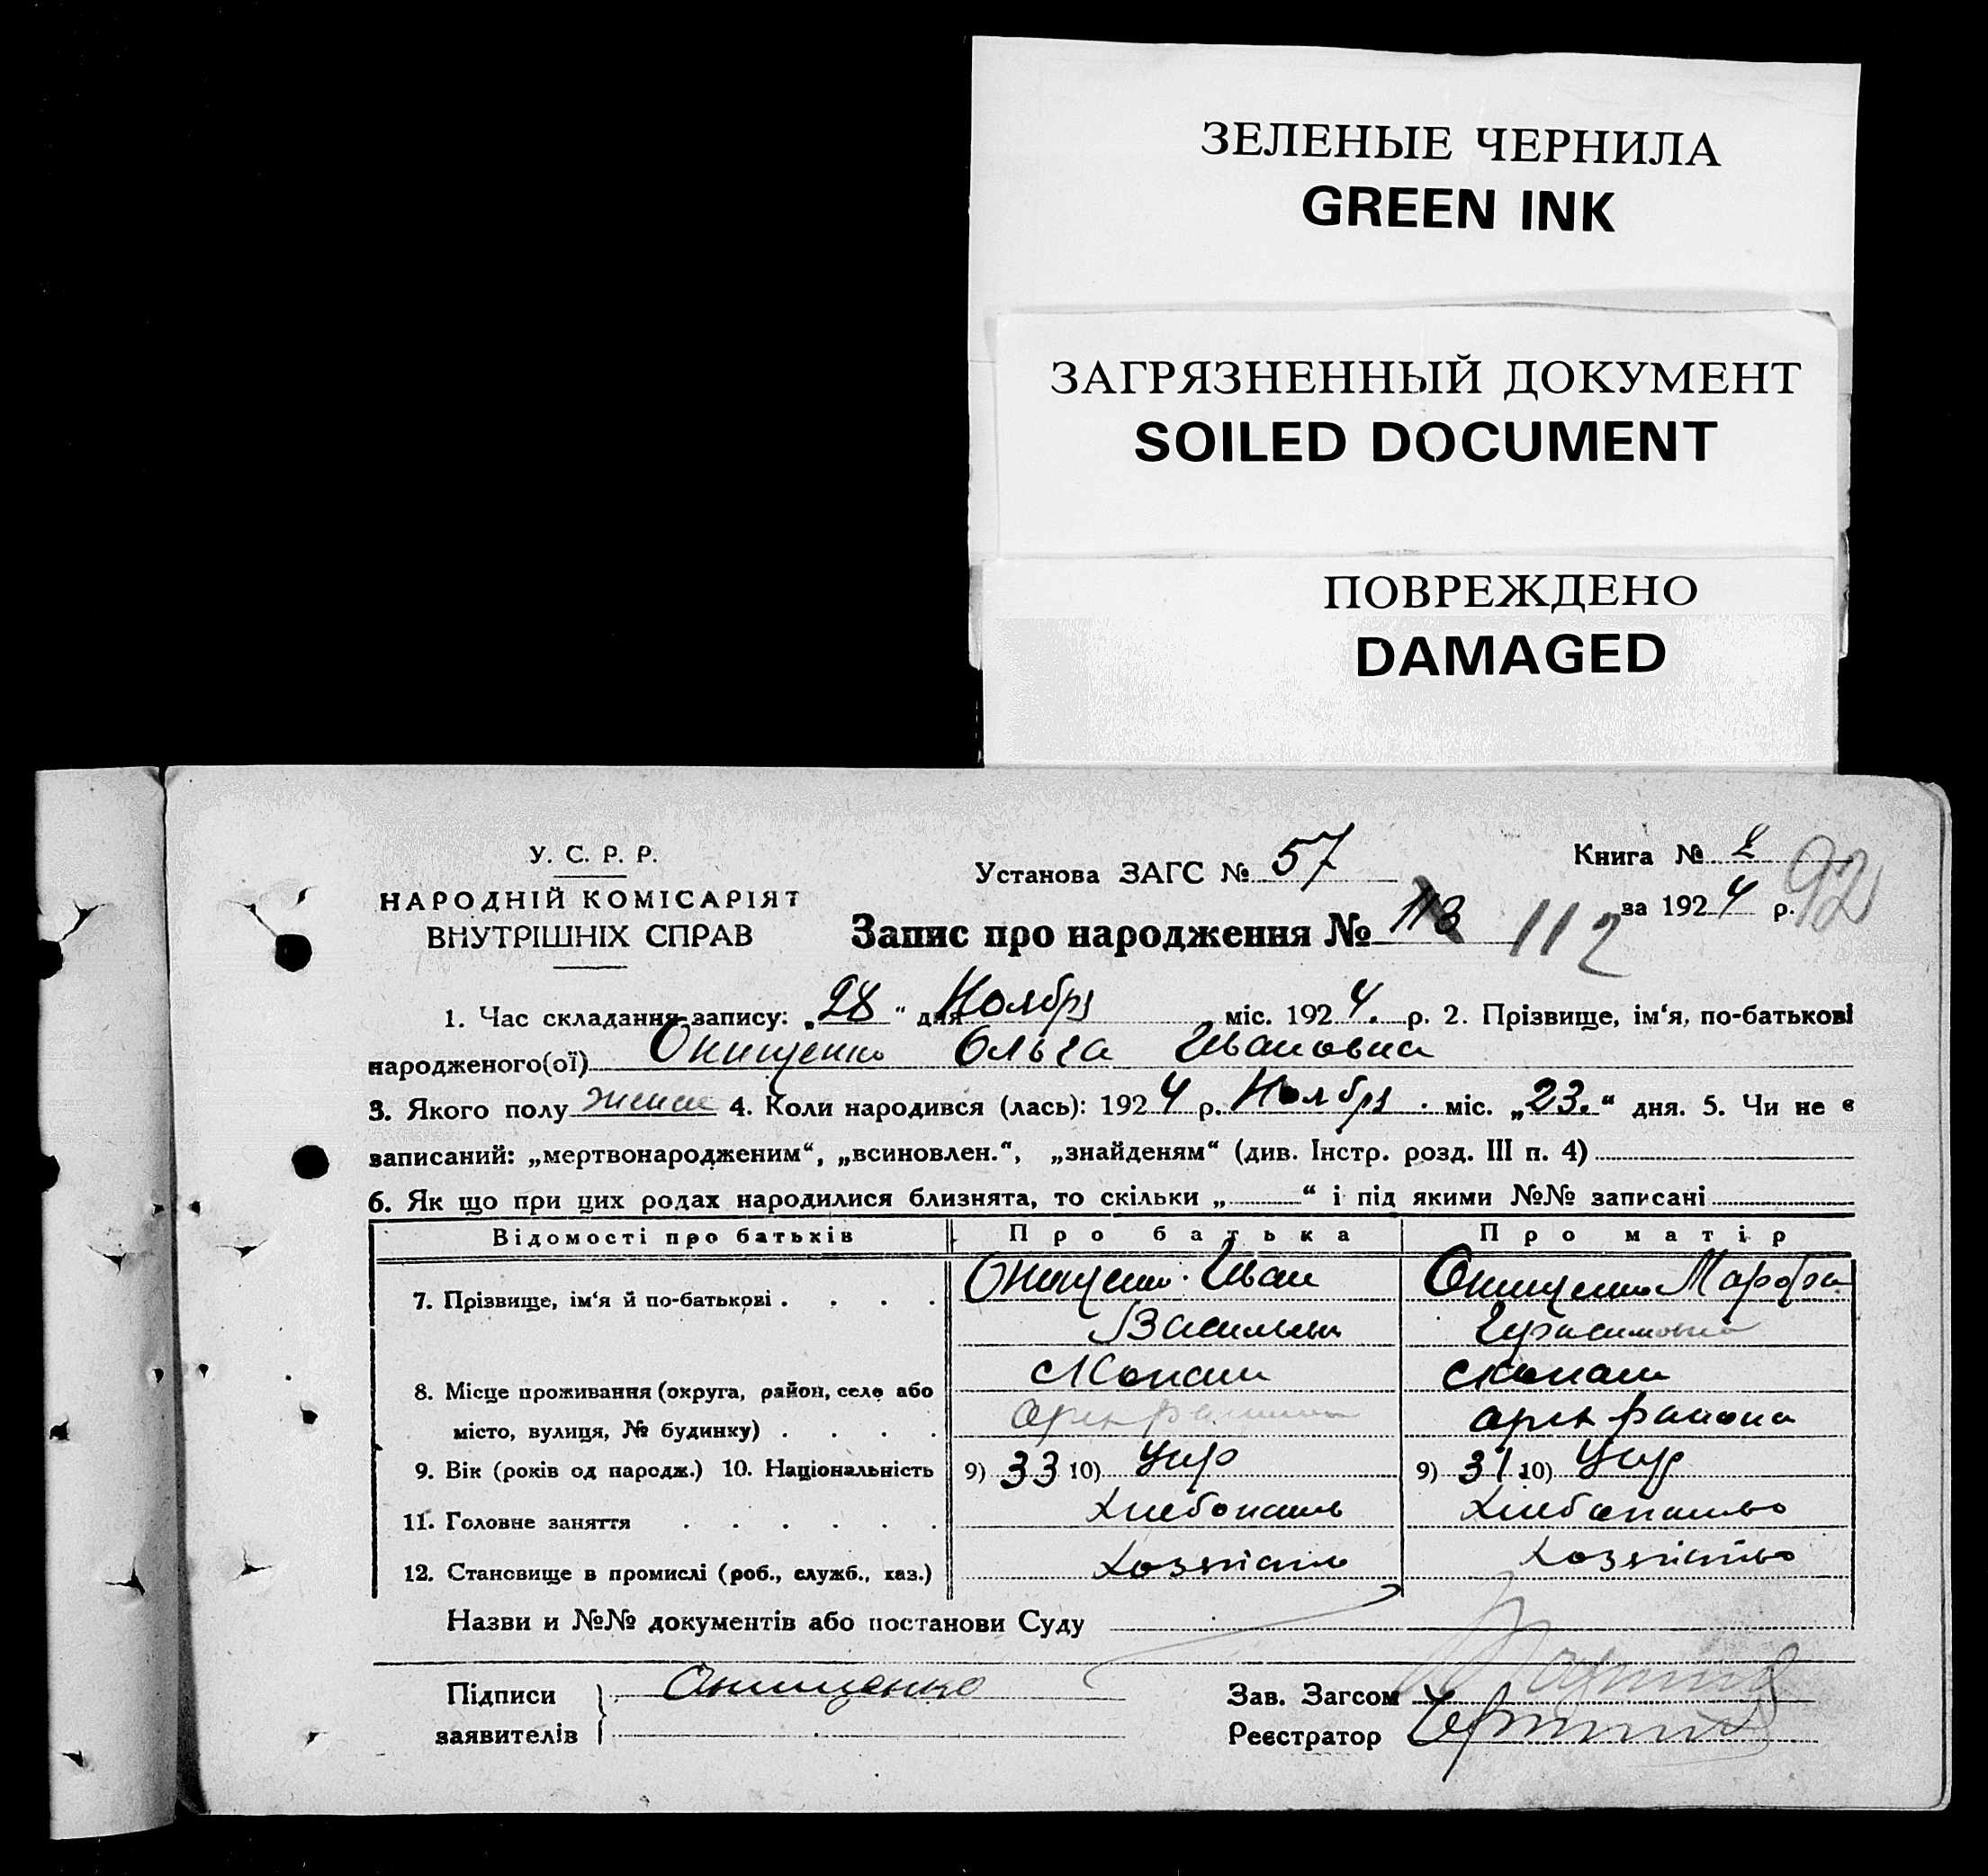 ЗЕЛЕНЫЕ ЧЕРНИЛА
GREEN INK
ЗАГРЯЗНЕННЫЙ ДОКУМЕНТ
SOILED DOCUMENT
ПОВРЕЖДЕНО
DAMAGED
У. С. Р. Р.
НАРОДНІЙ КОМІСАРІЯТ
ВНУТРІШНІХ СПРАВ
Установа ЗАГС № 57
Книга № 2
за 1924 р. 92
Запис про народження № 113 112
1. Час складання запису: „28" дня Ноября міс. 1924. р. 2. Прізвище, ім‘я, по-батькові
народженого(ої) Онищенко Ольга Ивановна
3. Якого полу женск 4. Коли народився (лась): 1924 р. Ноября міс. „23.“ дня. 5. Чи не є
записаний: „мертвонародженим“, „всиновлен.“, „знайденям“ (див. Інстр. розд. III п. 4)
6. Як що при цих родах народилися близнята, то скільки „ “ і під якими №№ записані
Відомості про батьків Про батька Про матір
7. Прізвище, ім‘я й по-батькові . . . . Онищенко Иван Онищенко Марфа
Васильев Герасимовна
8. Місце проживання (округа, район, село або
місто, вулиця, № будинку) . . . . района
9. Вік (років од народж.) 10. Національність 9) 33 10) Укр 9) 31 10) Укр
11. Головне заняття . . . . . . Хлебопаш Хлебопашево
12. Становище в промислі (роб., служб., хаз.)
Назви и №№ документів або постанови Суду
Підписи Онищенко
заявителів
Зав. Загсом
Реєстратор